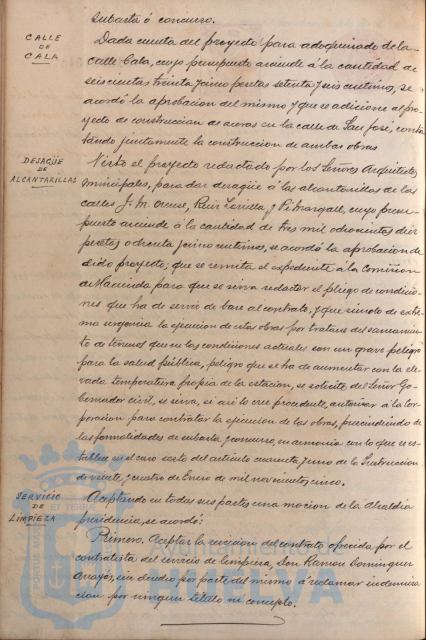 subasta ó concurso.
CALLE
DE
CALA
Dada cuenta del proyecto para adoquinado de la
calle Cala, cuyo presupuesto asciende á la cantidad de
seiscientas treinta y cinco pesetas setenta y seis centimos, se
acordó la aprobacion del mismo y que se adicione al pro-
yecto de construccion de aceras en la calle de San José, contra-
tándose juntamente la construccion de ambas obras.
DESAGÜE
DE
ALCANTARILLAS
Visto el proyecto redactado por los Señores Arquitectos
municipales, para dar desagüe á las alcantarillas de las
calles J. M. Orense, Ruiz Zorrilla y Pi Margall, cuyo presu-
puesto asciende á la cantidad de tres mil ochocientas diez
pesetas ochenta y cinco centimos, se acordó la aprobacion de
dicho proyecto; que se remita el expediente á la Comision
de Hacienda para que se sirva redactar el pliego de condicio-
nes que ha de servir de base al contrato, y que siendo de extre-
ma urgencia la ejecucion de estas obras por tratarse del saneamien-
to de terrenos que en las condiciones actuales son un grave peligro
para la salud pública, peligro que se ha de aumentar con la ele-
vada temperatura propia de la estacion, se solicite del Señor Go-
bernador civil, se sirva, si así lo cree procedente, autorizar á la Cor-
poracion para contratar la ejecucion de las obras, prescindiendo de
las formalidades de subasta y concurso, en armonia con lo que se es-
tablece en el caso sexto del artículo cuarenta y uno de la Instruccion
de veinte y cuatro de Enero de mil novecientos cinco.
SERVICIO
DE
LIMPIEZA
Aceptando en todas sus partes una mocion de la Alcaldia
presidencia, se acordó:
Primero. Aceptar la rescision del contrato ofrecida por el
contratista del servicio de limpieza, Don Ramon Dominguez
sin derecho por parte del mismo á reclamar indemniza-
cion por ningun título ni concepto.
Ayuntamiento de
HUELVA